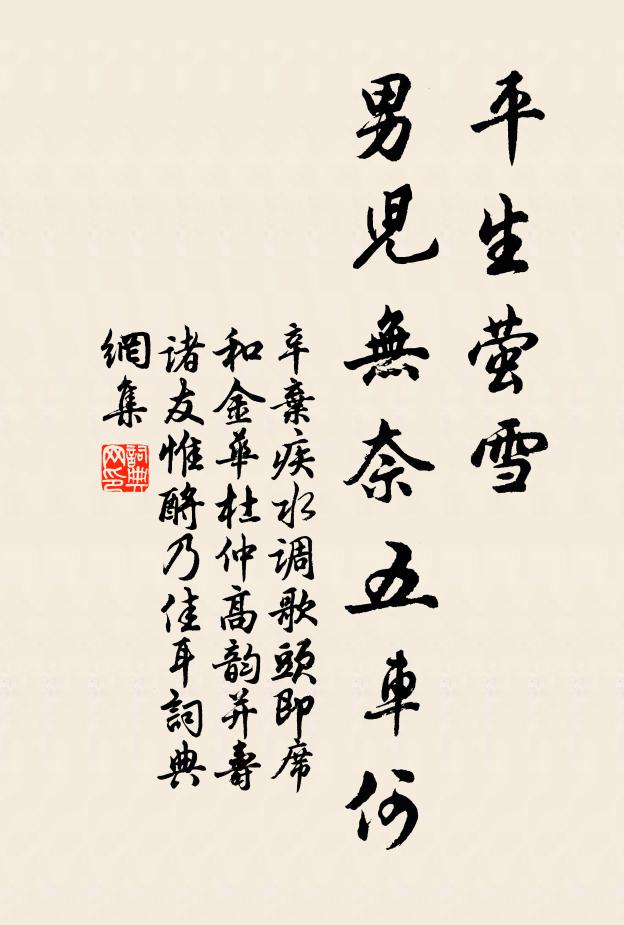 平生萤雪
男児無奈五車何
辛棄疾水调歌頭即席
和金華杜仲高韵并壽
诸友惟酹乃佳耳詞典
網集
詞典网印